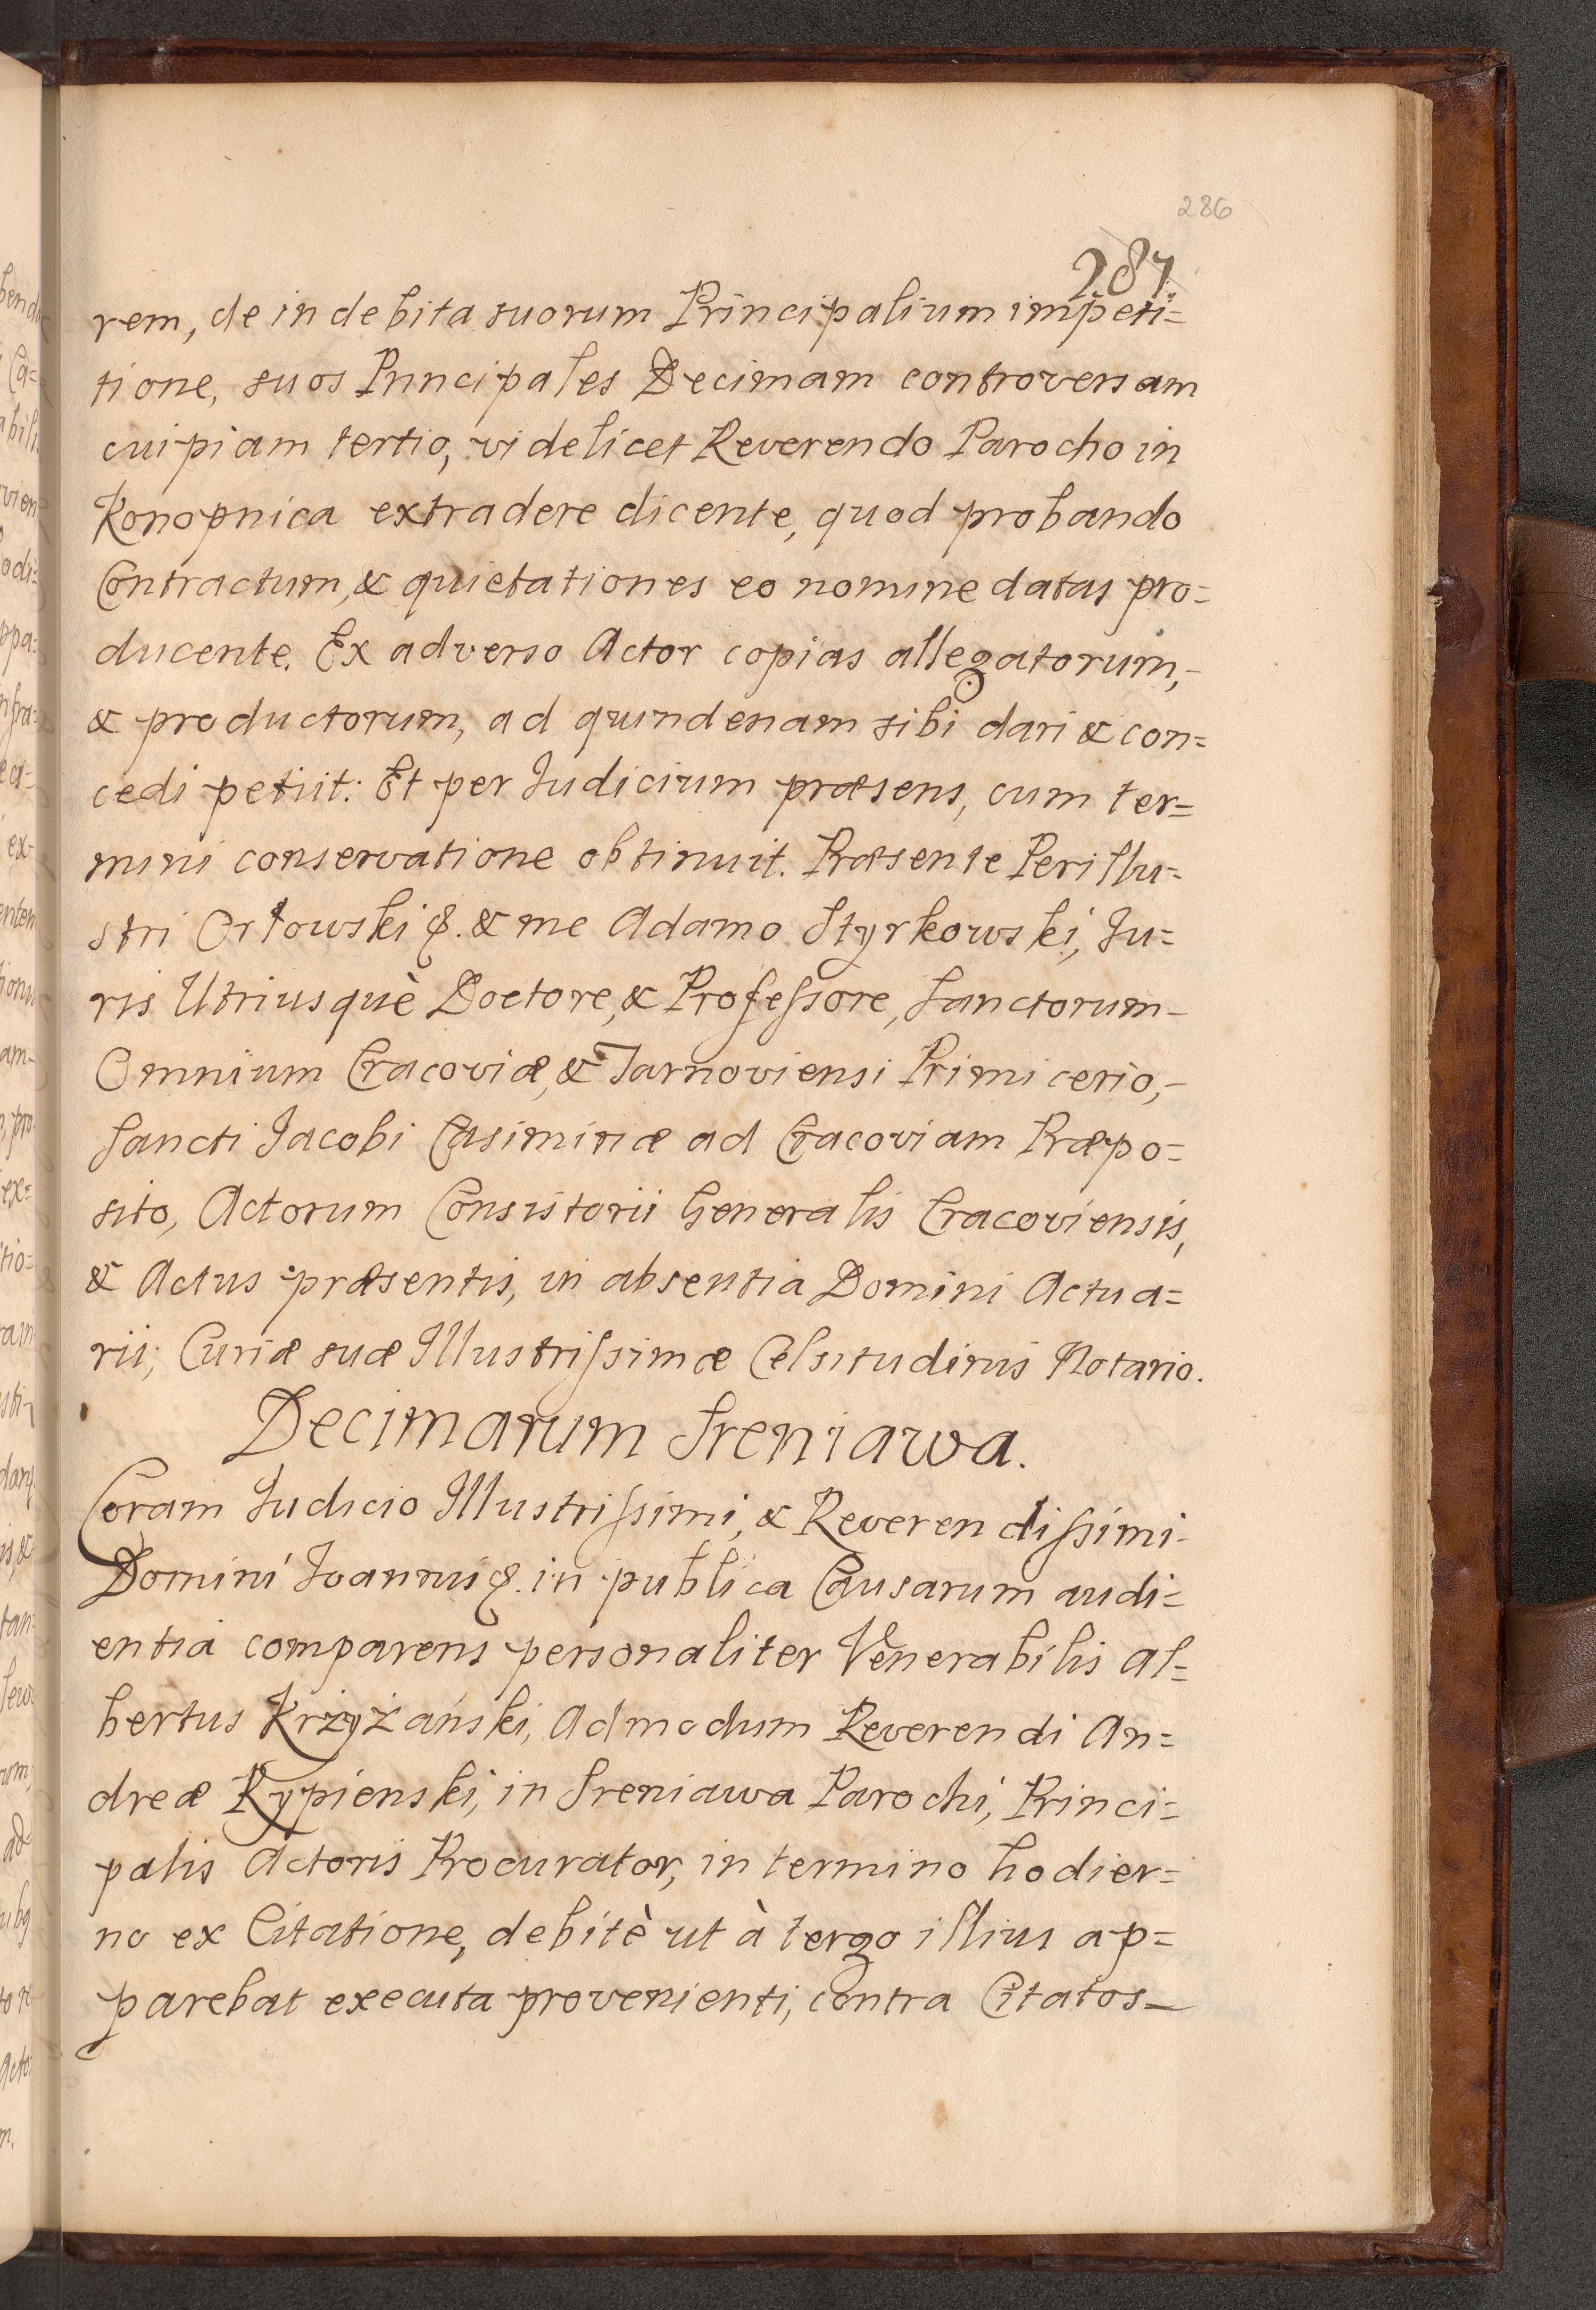 286
287.
rem, de indebita suorum Principalium impeti=
tione, suos Principales Decimam controversam
cuipiam tertio, videlicet Reverendo Parocho in
Konopnica extradere dicente, quod probando
Contractum, & quietationes eo nomine datas pro=
ducente. Ex adverso Actor copias allegatorum,-
& productorum, ad quindenam sibi dari & con=
cedi petiit: Et per Judicium præsens, cum ter=
mini conservatione obtinuit. Præsente Perillu=
stri Orłowski &. & me Adamo Styrkowski, Ju=
ris Utriusquè Doctore, & Professore, Sanctorum-
Omnium Cracoviæ, & Tarnoviensi Primicerio,-
Sancti Jacobi Casimiriæ ad Cracoviam Præpo=
sito, Actorum Consistorii Generalis Cracoviensis,
& Actus præsentis, in absentia Domini Actua=
rii, Curiæ suæ Illustrissimæ Celsitudinis Notario.
Decimarum Sreniawa.
Coram Judicio Illustrissimi, & Reverendissimi-
Domini Joannis &. in publica Causarum audi=
entia comparens personaliter Venerabilis Al=
bertus Krżyżański, Admodum Reverendi An=
dreæ Rypienski, in Sreniawa Parochi, Princi=
palis Actoris Procurator, in termino hodier=
no ex Citatione, debitè ut à tergo illius ap=
parebat executa provenienti, contra Citatos-